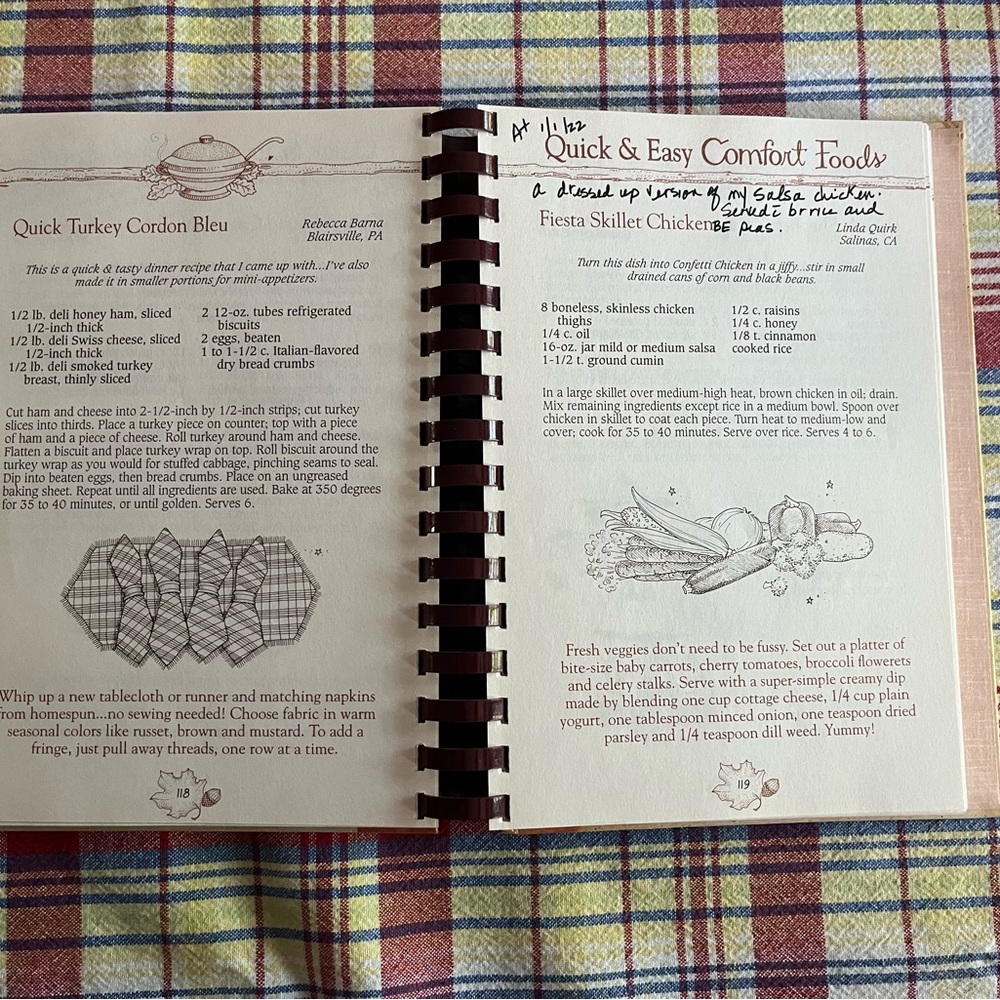 Quick Turkey Cordon Bleu
Rebecca Barna
Blairsville, PA
This is a quick & tasty dinner recipe that I came up with...I've also
made it in smaller portions for mini-appetizers.
1/2 lb. deli honey ham, sliced
1/2-inch thick
1/2 lb. deli Swiss cheese, sliced
1/2-inch thick
1/2 lb. deli smoked turkey
breast, thinly sliced
2 12-oz. tubes refrigerated
biscuits
2 eggs, beaten
1 to 1-1/2 c. Italian-flavored
dry bread crumbs
Cut ham and cheese into 2-1/2-inch by 1/2-inch strips; cut turkey
slices into thirds. Place a turkey piece on counter; top with a piece
of ham and a piece of cheese. Roll turkey around ham and cheese.
Flatten a biscuit and place turkey wrap on top. Roll biscuit around the
turkey wrap as you would for stuffed cabbage, pinching seams to seal.
Dip into beaten eggs, then bread crumbs. Place on an ungreased
baking sheet. Repeat until all ingredients are used. Bake at 350 degrees
for 35 to 40 minutes, or until golden. Serves 6.
Whip up a new tablecloth or runner and matching napkins
from homespun...no sewing needed! Choose fabric in warm
seasonal colors like russet, brown and mustard. To add a
fringe, just pull away threads, one row at a time.
118
A+ 1/1/22
Quick & Easy Comfort Foods
a dressed up version of my salsa chicken.
Served c̄ br rice and
BE peas.
Fiesta Skillet Chicken
Linda Quirk
Salinas, CA
Turn this dish into Confetti Chicken in a jiffy...stir in small
drained cans of corn and black beans.
8 boneless, skinless chicken
thighs
1/4 c. oil
16-oz. jar mild or medium salsa
1-1/2 t. ground cumin
1/2 c. raisins
1/4 c. honey
1/8 t. cinnamon
cooked rice
In a large skillet over medium-high heat, brown chicken in oil; drain.
Mix remaining ingredients except rice in a medium bowl. Spoon over
chicken in skillet to coat each piece. Turn heat to medium-low and
cover; cook for 35 to 40 minutes. Serve over rice. Serves 4 to 6.
Fresh veggies don't need to be fussy. Set out a platter of
bite-size baby carrots, cherry tomatoes, broccoli flowerets
and celery stalks. Serve with a super-simple creamy dip
made by blending one cup cottage cheese, 1/4 cup plain
yogurt, one tablespoon minced onion, one teaspoon dried
parsley and 1/4 teaspoon dill weed. Yummy!
119